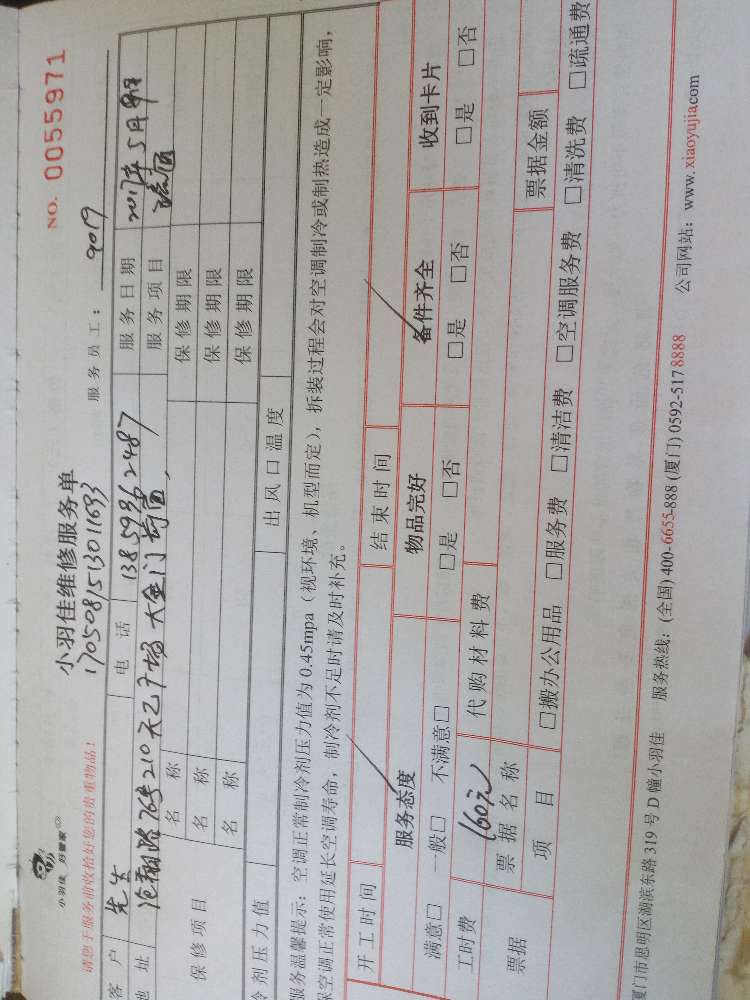 小羽佳 好管家
小羽佳维修服务单
NO. 0055971
请您于服务前收拾好您的贵重物品!
1705081513011693
服务员工: 9019
客户 先生 电话 13859962487 服务日期 2017年5月9日
地址 沧翔路76号210天乙广场大金门 服务项目
保修项目 名称 保修期限
名称 保修期限
名称 保修期限
冷剂压力值 出风口温度
服务温馨提示:空调正常制冷剂压力值为0.45mpa(视环境、机型而定),拆装过程会对空调制冷或制热造成一定影响,
保空调正常使用延长空调寿命,制冷剂不足时请及时补充。
开工时间 结束时间
服务态度 物品完好 备件齐全 收到卡片
满意□ 一般□ 不满意□ □是 □否 □是 □否 □是 □否
工时费 160元 代购材料费
票据 票据名称 票据金额
项目 □搬办公用品 □服务费 □清洁费 □空调服务费 □清洗费 □疏通费
厦门市思明区湖滨东路319号D幢小羽佳 服务热线:(全国)400-6655-888 (厦门)0592-5178888 公司网站:www.xiaoyujia.com